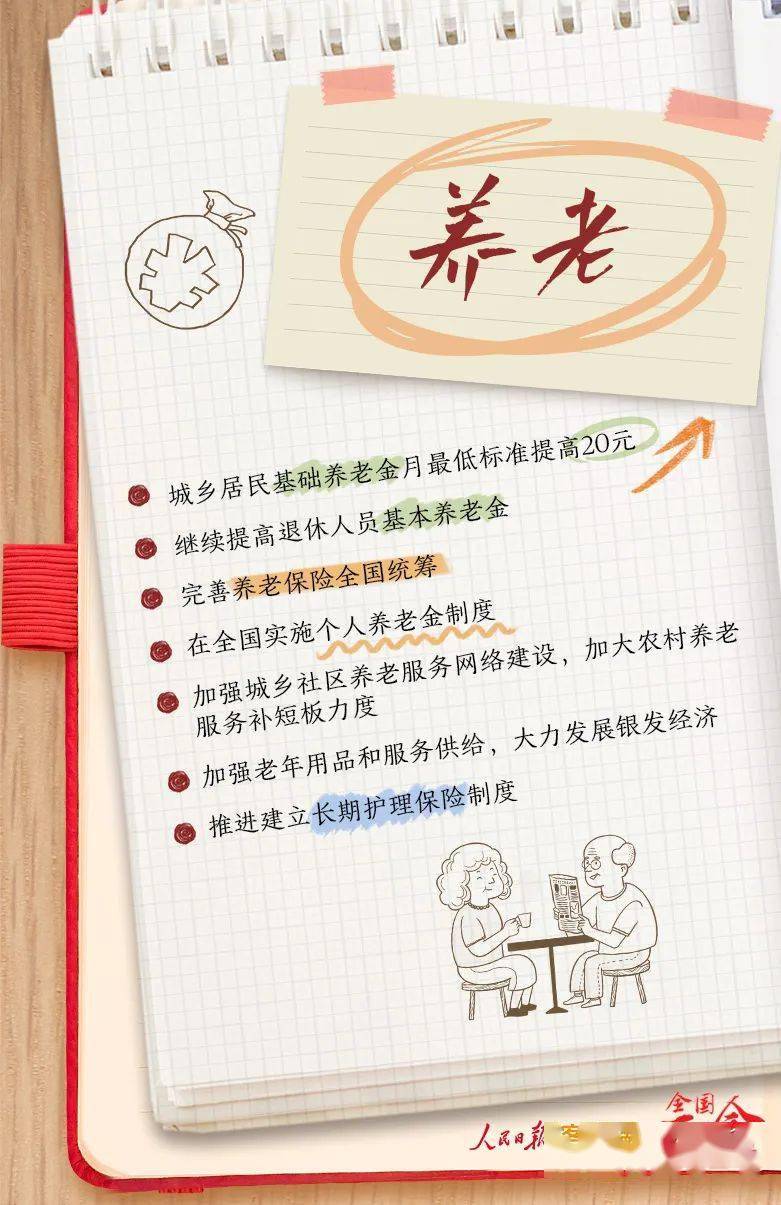 养老
城乡居民基础养老金月最低标准提高20元
继续提高退休人员基本养老金
完善养老保险全国统筹
在全国实施个人养老金制度
加强城乡社区养老服务网络建设，加大农村养老
服务补短板力度
加强老年用品和服务供给，大力发展银发经济
推进建立长期护理保险制度
全国
人民日报